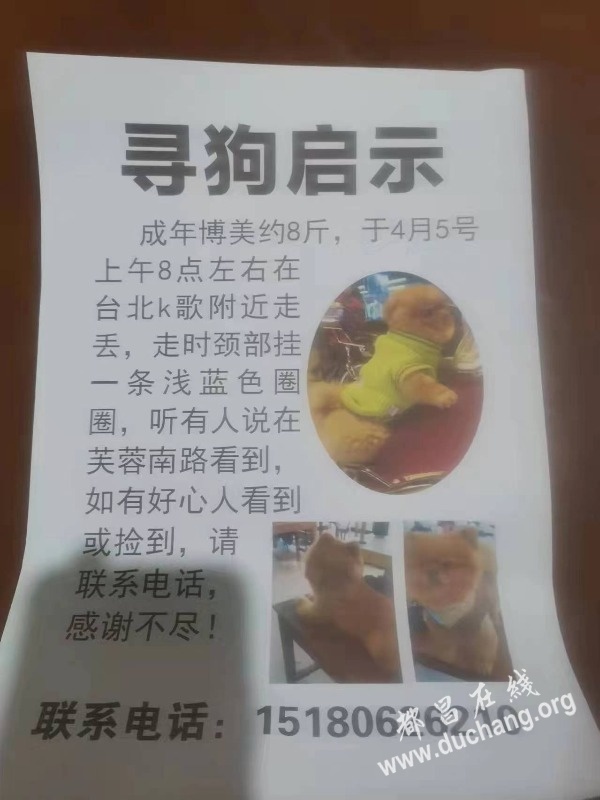 寻狗启示
成年博美约8斤，于4月5号
上午8点左右在
台北k歌附近走
丢，走时颈部挂
一条浅蓝色圈
圈，听有人说在
芙蓉南路看到，
如有好心人看到
或捡到，请
联系电话，
感谢不尽！
联系电话：15180626210
都昌在线
www.duchang.org